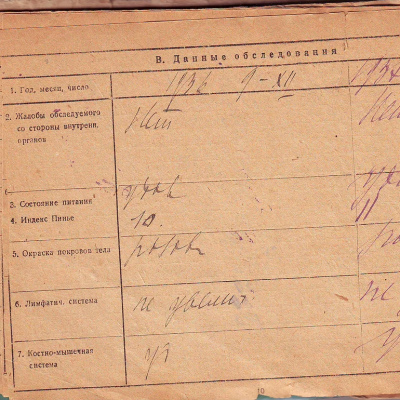 В. Данные обследования
1. Год, месяц, число 1936 9-XII 193
2. Жалобы обследуемого
со стороны внутренн.
органов Нет
3. Состояние питания удов
4. Индекс Пинье 10. 11
5. Окраска покровов тела розов
6. Лимфатич. система не увелич. не
7. Костно-мышечная
система уд
10